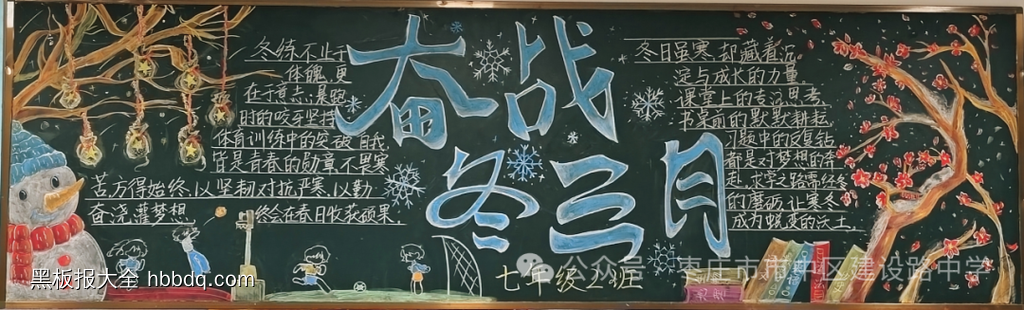 奋战
冬三月
冬练不止于
体魄,更
在于意志,晨跑
时的咬牙坚持
体育训练中的突破自我
皆是青春的勋章,不畏寒
苦方得始终,以坚韧对抗严寒,以勤
奋浇灌梦想
终会在春日收获硕果.
冬日虽寒,却藏着沉
淀与成长的力量
课堂上的专注思考,
书桌前的默默耕耘
习题中的反复钻
都是对梦想的奔
赴,求学之路需经冬
的磨砺,让寒冬
成为蜕变的沃土.
七年级2班
公众号 枣庄市市中区建设路中学
黑板报大全 hbbdq.com